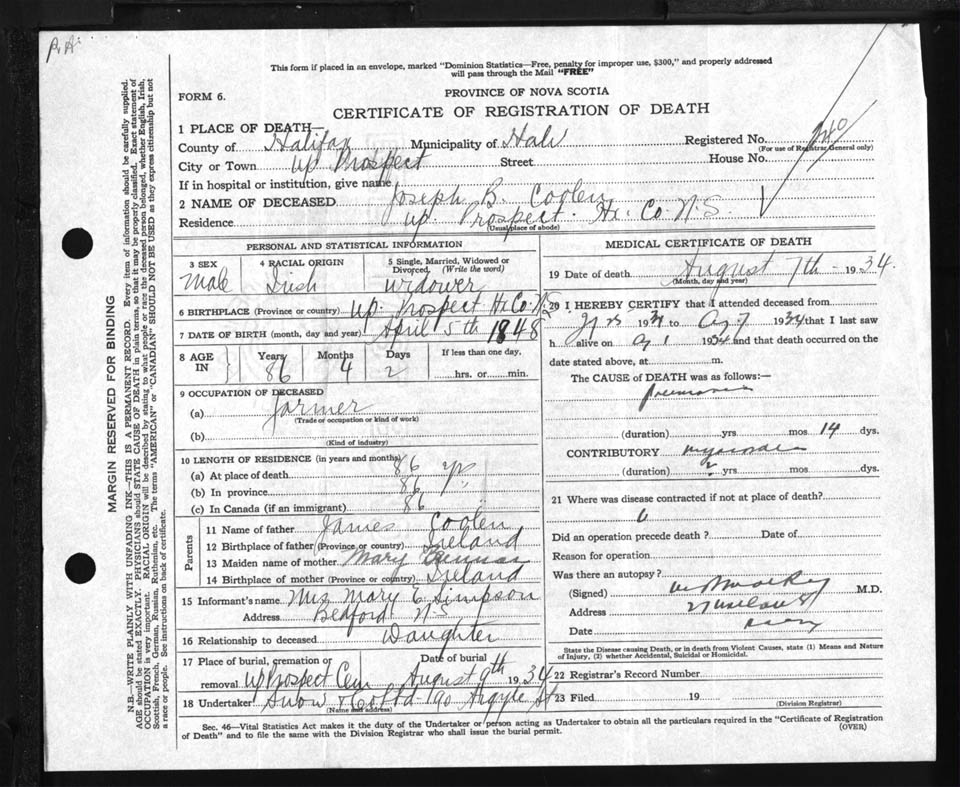 P.A.
This form if placed in an envelope, marked "Dominion Statistics—Free, penalty for improper use, $300," and properly addressed
will pass through the Mail "FREE"
FORM 6.
PROVINCE OF NOVA SCOTIA
CERTIFICATE OF REGISTRATION OF DEATH
1 PLACE OF DEATH—
County of Halifax Municipality of Registered No.
(For use of Registrar General only)
City or Town Up Prospect Street House No.
If in hospital or institution, give name
2 NAME OF DECEASED Joseph B. Coolen
Residence Up. Prospect. Hx. Co. N.S.
(Usual place of abode)
PERSONAL AND STATISTICAL INFORMATION
3 SEX
Male
4 RACIAL ORIGIN
Irish
5 Single, Married, Widowed or
Divorced, (Write the word)
Widower
6 BIRTHPLACE (Province or country) Up. Prospect Hx Co. N.S
7 DATE OF BIRTH (month, day and year) April 5th 1848
8 AGE IN Years 86 Months 4 Days 2 If less than one day, hrs. or min.
9 OCCUPATION OF DECEASED
(a) Farmer
(Trade or occupation or kind of work)
(b)
(Kind of industry)
10 LENGTH OF RESIDENCE (in years and months)
(a) At place of death 86 yrs
(b) In province 86
(c) In Canada (if an immigrant) 86
Parents
11 Name of father James Coolen
12 Birthplace of father (Province or country) Ireland
13 Maiden name of mother Mary
14 Birthplace of mother (Province or country) Ireland
15 Informant's name Mrs Mary E Simpson
Address Bedford N.S
16 Relationship to deceased Daughter
17 Place of burial, cremation or Date of burial
removal Up Prospect Cem August 9th 1934
18 Undertaker Snow & Co Ltd - 90 Argyle St
(Name and address)
MEDICAL CERTIFICATE OF DEATH
19 Date of death August 7th - 1934.
(Month, day and year)
20 I HEREBY CERTIFY that I attended deceased from
1934 to Aug 7 1934 that I last saw
h alive on 1934 and that death occurred on the
date stated above, at m.
The CAUSE of DEATH was as follows:—
Pneumonia
(duration) yrs mos 14 dys.
CONTRIBUTORY
(duration) 2 yrs mos dys.
21 Where was disease contracted if not at place of death?
Did an operation precede death? Date of
Reason for operation
Was there an autopsy?
(Signed) M.D.
Address
Date
State the Disease causing Death, or in death from Violent Causes, state (1) Means and Nature
of Injury, (2) whether Accidental, Suicidal or Homicidal.
22 Registrar's Record Number
23 Filed 19
(Division Registrar)
Sec. 46—Vital Statistics Act makes it the duty of the Undertaker or person acting as Undertaker to obtain all the particulars required in the "Certificate of Registration
of Death" and to file the same with the Division Registrar who shall issue the burial permit.
(OVER)
MARGIN RESERVED FOR BINDING
N.B.—WRITE PLAINLY WITH UNFADING INK—THIS IS A PERMANENT RECORD. Every item of information should be carefully supplied.
AGE should be stated EXACTLY. PHYSICIANS should STATE CAUSE OF DEATH in plain terms, so that it may be properly classified. Exact statement of
OCCUPATION is very important. RACIAL ORIGIN will be described by stating to what people or race the deceased person belonged, whether English, Irish,
Scottish, French, German, Russian, Ruthenian, etc. The terms "AMERICAN" or "CANADIAN" SHOULD NOT BE USED as they express citizenship but not
a race or people. See instructions on back of certificate.